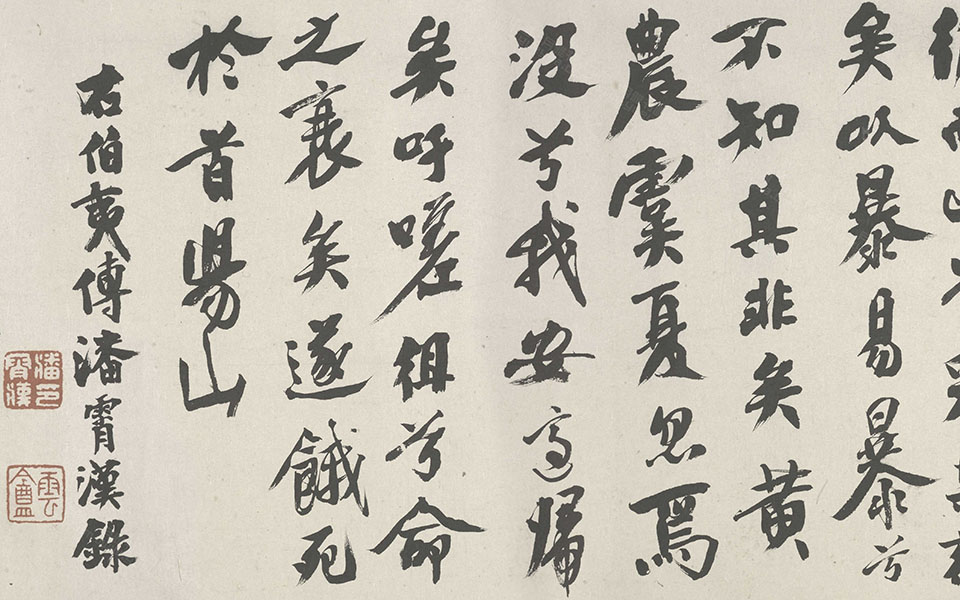 矣以暴易暴兮
不知其非矣黄
農虞夏忽焉
没兮我安適歸
矣呼嗟徂兮命
之衰矣遂餓死
於首陽山
右伯夷傳潘霄漢錄
潘印霄漢
雲盦